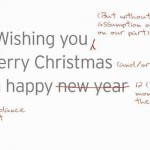 (But without
assumption o
on our part)
Wishing you,
erry Christmas
(and/or
happy new year
12 (
mon
the
dance